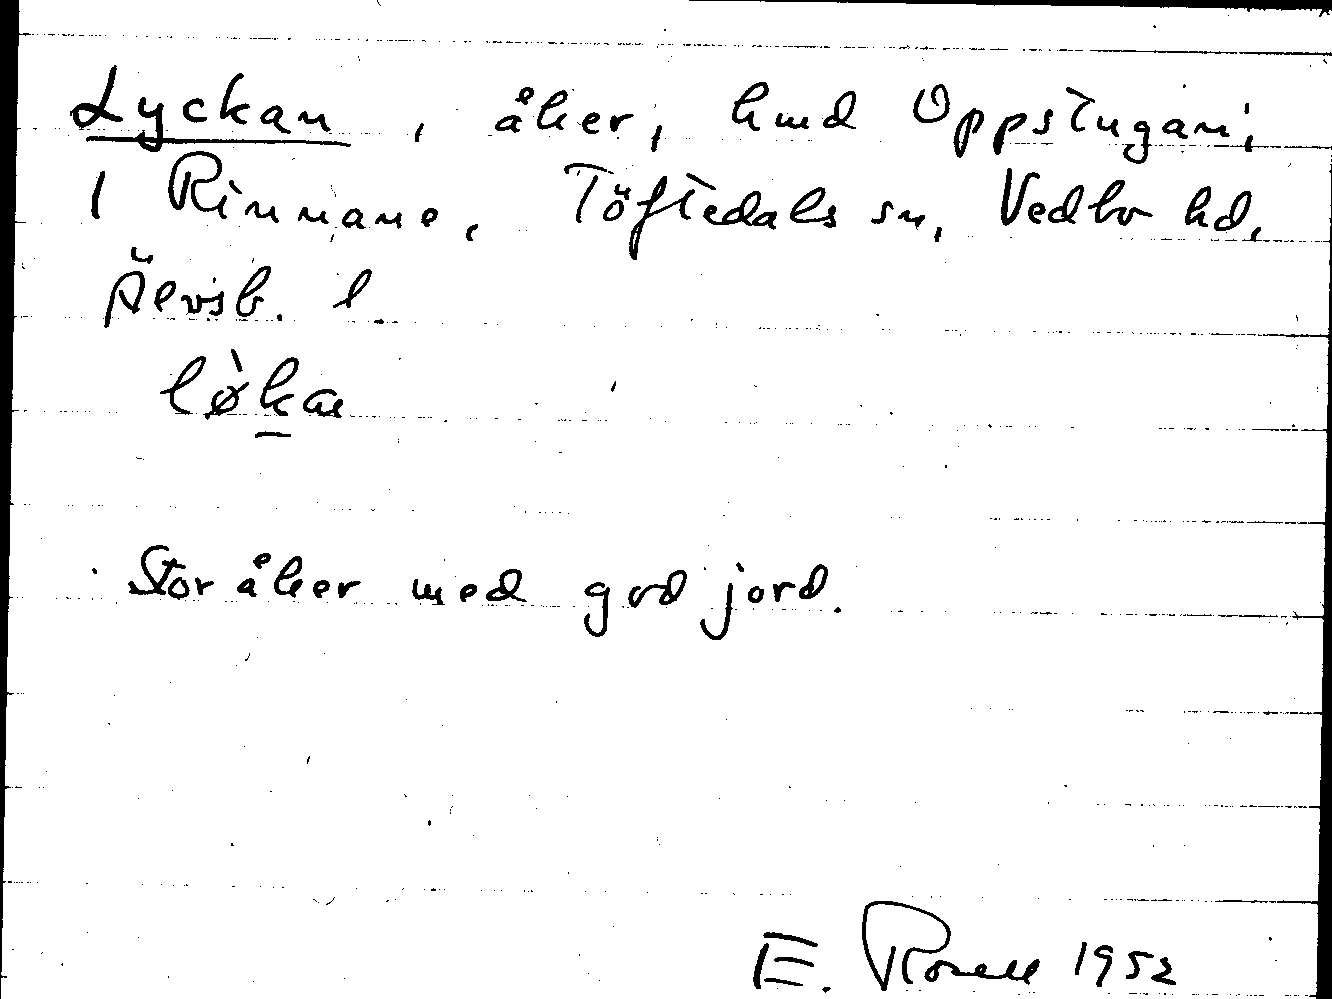 Lyckan, åker, hmd Oppstugan,
1 Rinnane, Töftedals sn, Vedbo hd,
Älvsb. l.
lø̀kan
Stor åker med god jord.
E. Rosell 1952